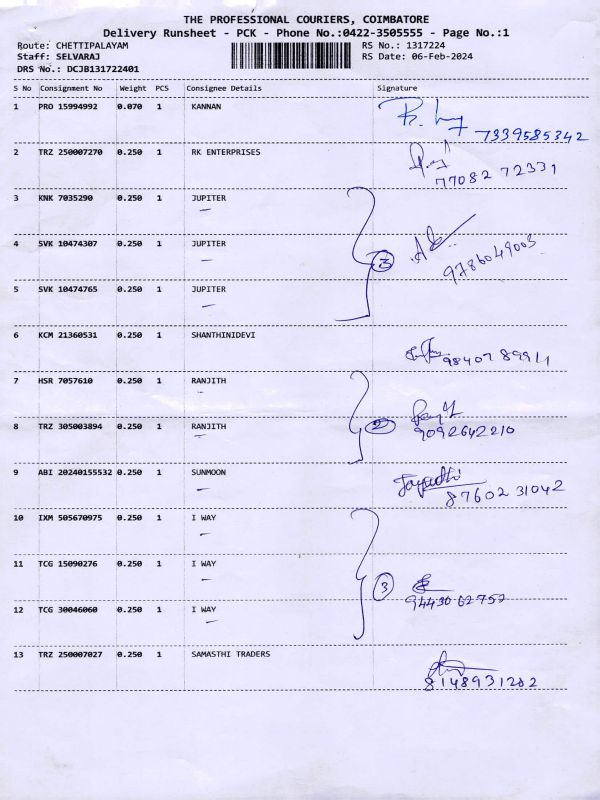 THE PROFESSIONAL COURIERS, COIMBATORE
Delivery Runsheet - PCK - Phone No.:0422-3505555 - Page No.:1
Route: CHETTIPALAYAM RS No.: 1317224
Staff: SELVARAJ RS Date: 06-Feb-2024
DRS No.: DCJB131722401
S No Consignment No Weight PCS Consignee Details Signature
1 PRO 15994992 0.070 1 KANNAN
7339585342
2 TRZ 250007270 0.250 1 RK ENTERPRISES
77082 72331
3 KNK 7035290 0.250 1 JUPITER
4 SVK 10474307 0.250 1 JUPITER
3 9786049003
5 SVK 10474765 0.250 1 JUPITER
6 KCM 21360531 0.250 1 SHANTHINIDEVI
98407 89911
7 HSR 7057610 0.250 1 RANJITH
8 TRZ 305003894 0.250 1 RANJITH
2 9092642210
9 ABI 20240155532 0.250 1 SUNMOON
87602 31042
10 IXM 505670975 0.250 1 I WAY
11 TCG 15090276 0.250 1 I WAY
3 94430 62752
12 TCG 30046060 0.250 1 I WAY
13 TRZ 250007027 0.250 1 SAMASTHI TRADERS
8148931282